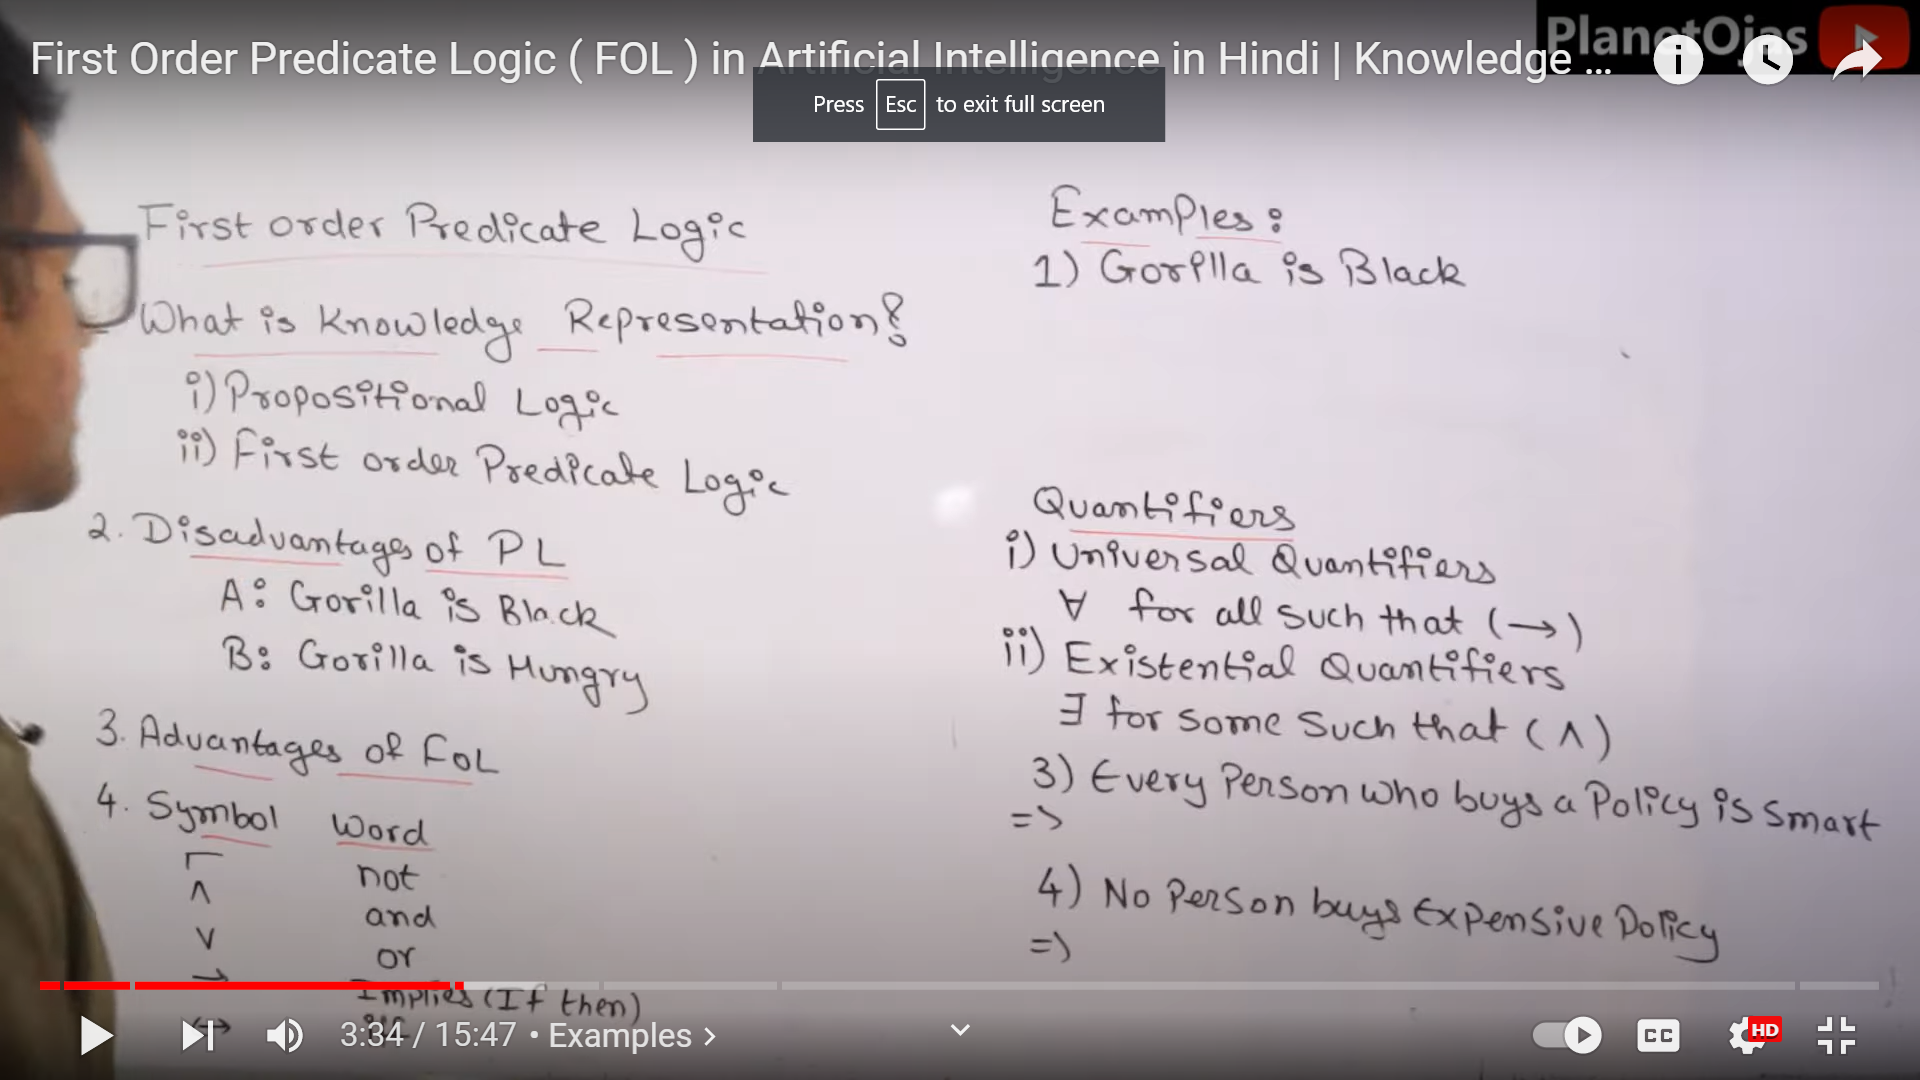 First Order Predicate Logic ( FOL ) in Artificial Intelligence in Hindi | Knowledge ...
PlanetOjas
Press Esc to exit full screen
First order Predicate Logic
What is Knowledge Representation?
i) Propositional Logic
ii) First order Predicate Logic
2. Disadvantages of PL
A: Gorilla is Black
B: Gorilla is Hungry
3. Advantages of FOL
4. Symbol Word
ㄱ not
∧ and
∨ or
→ Implies (If then)
↔
Examples:
1) Gorilla is Black
Quantifiers
i) Universal Quantifiers
∀ for all such that (→)
ii) Existential Quantifiers
∃ for some such that (∧)
3) Every Person who buys a Policy is smart
=>
4) No Person buys Expensive Policy
=>
3:34 / 15:47 • Examples >
CC
HD